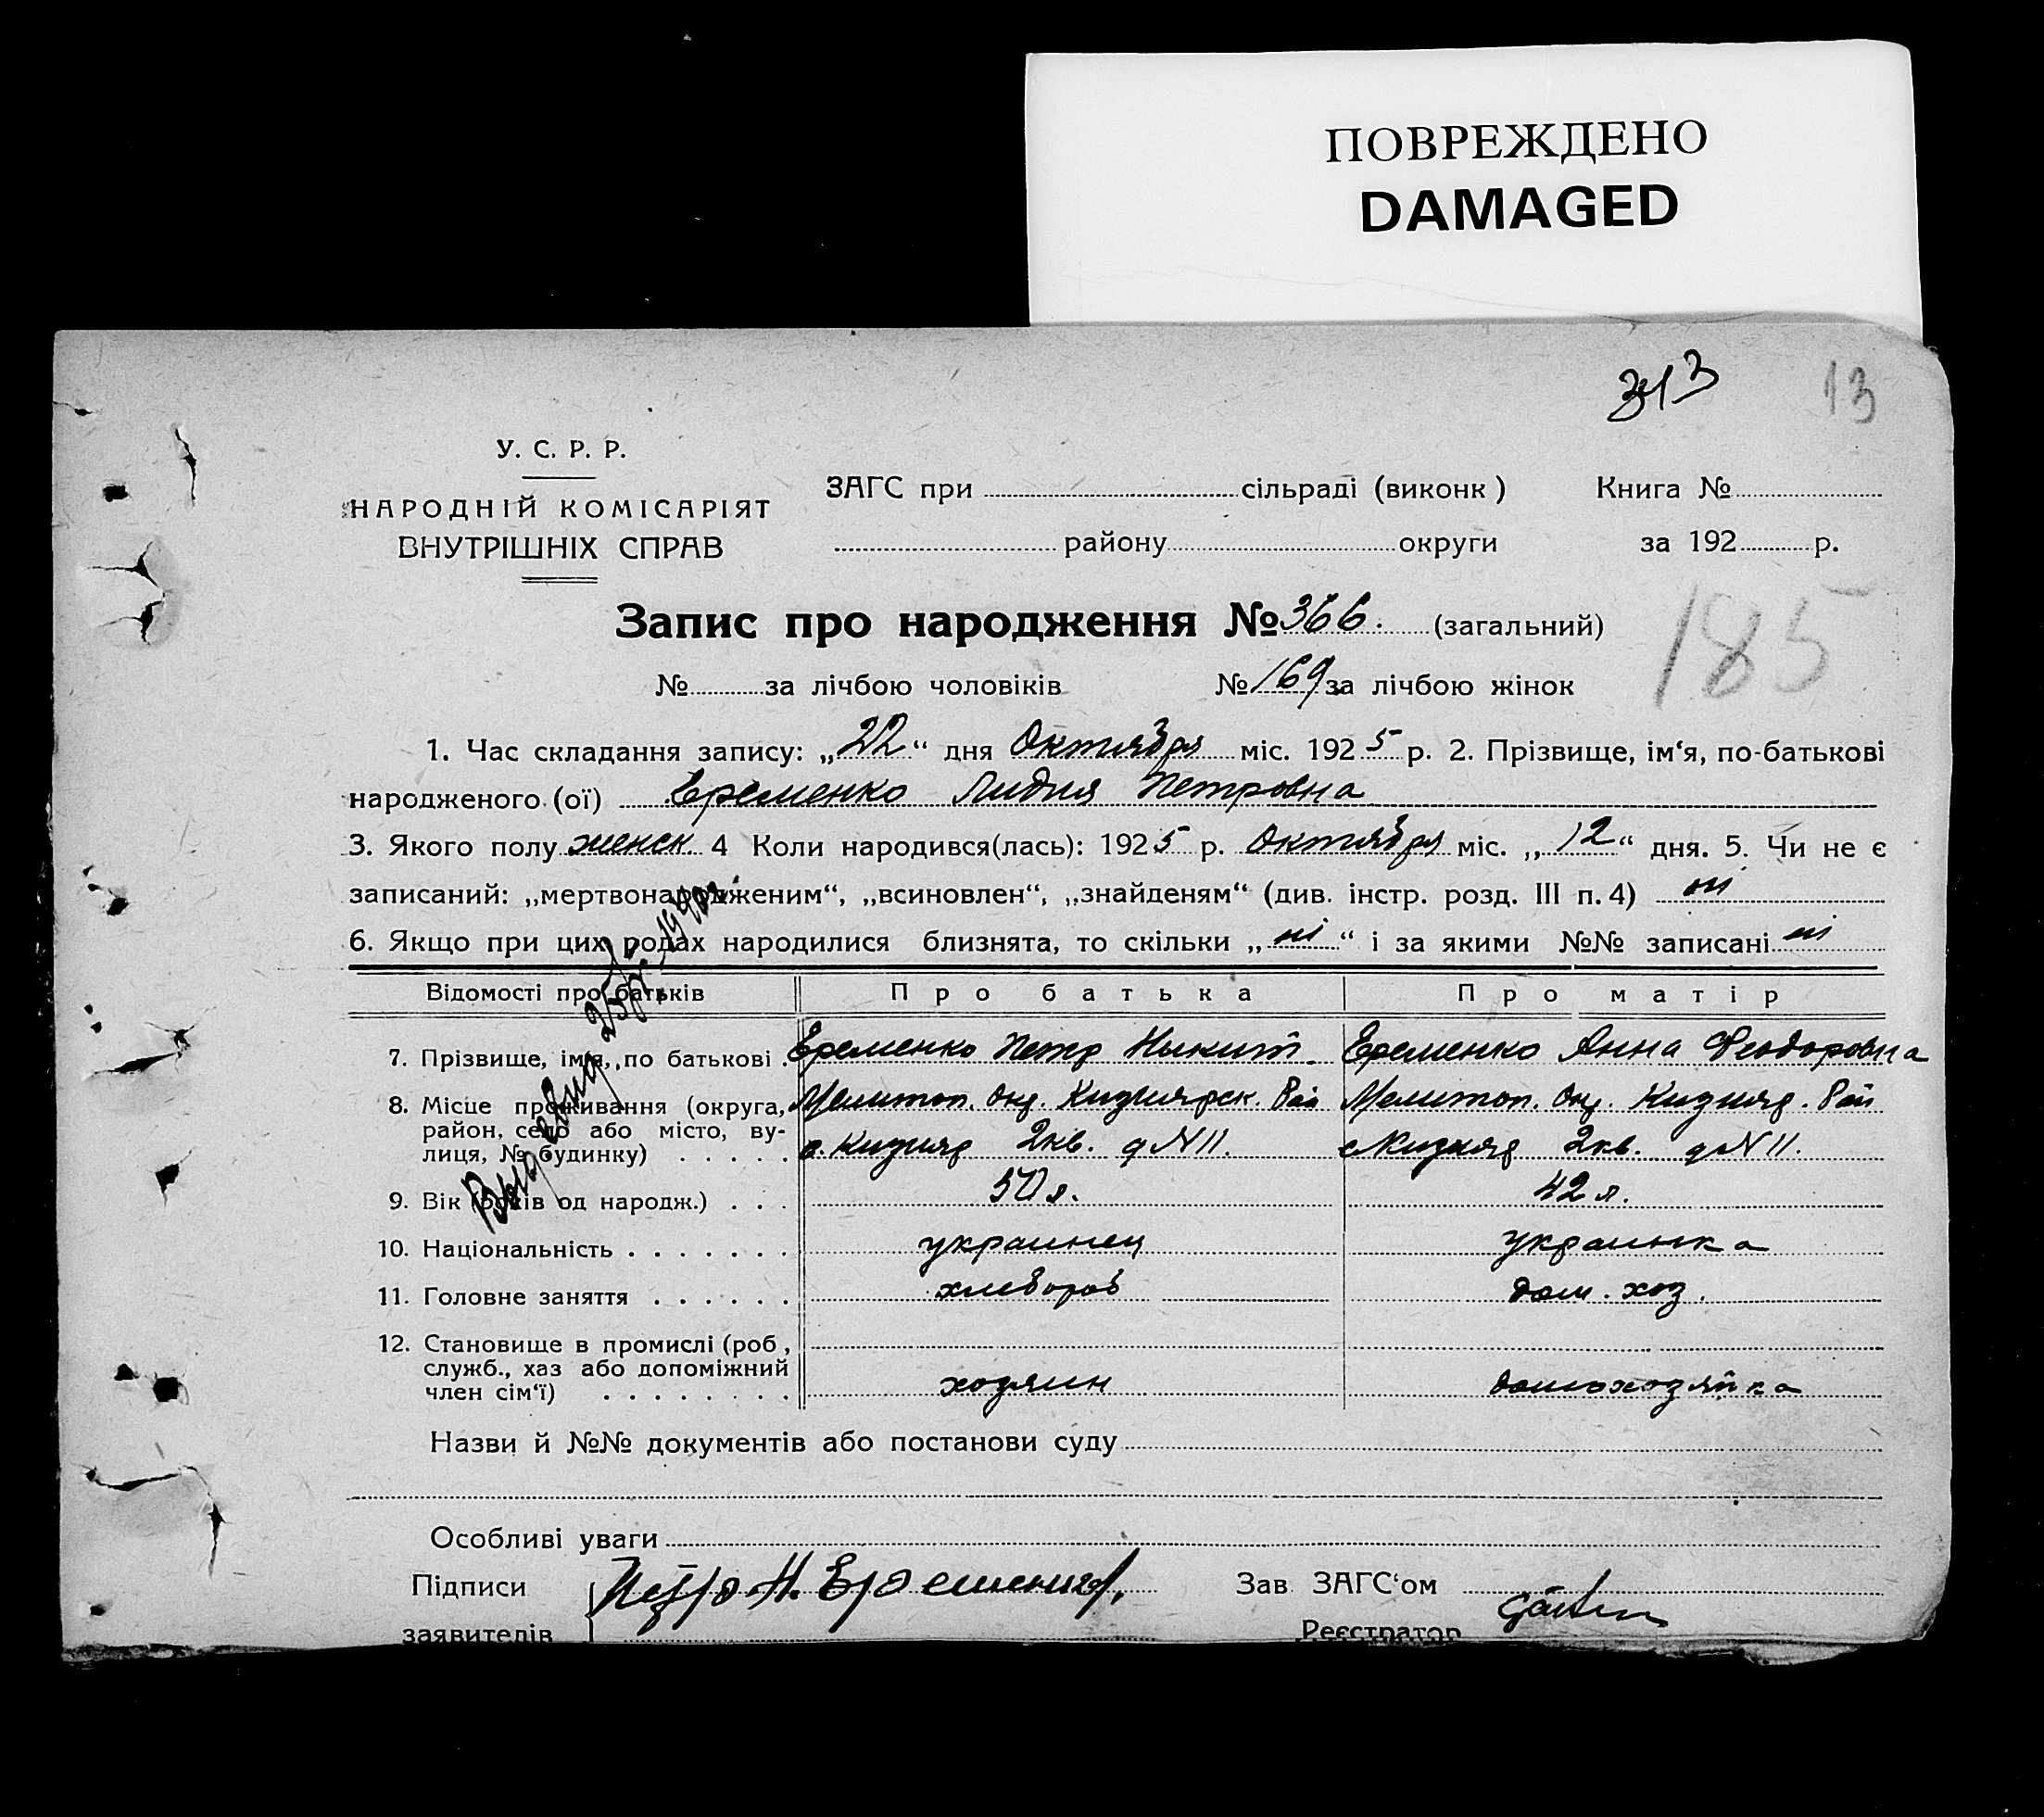 ПОВРЕЖДЕНО
DAMAGED
313 13
У. С. Р. Р.
НАРОДНІЙ КОМІСАРІЯТ
ВНУТРІШНІХ СПРАВ
ЗАГС при сільраді (виконк ) Книга №
району округи за 192 р.
Запис про народження № 366. (загальний)
185
№ за лічбою чоловіків № 169 за лічбою жінок
1. Час складання запису: „22“ дня Октября міс. 1925 р. 2. Прізвище, ім‘я, по-батькові
народженого (ої) Еременко Лидия Петровна
3. Якого полу женск. 4 Коли народився(лась): 1925 р. Октября міс. „12“ дня. 5. Чи не є
записаний: „мертвонародженим“, „всиновлен“, „знайденям“ (див. інстр. розд. III п. 4) ні
6. Якщо при цих родах народилися близнята, то скільки „ні“ і за якими №№ записані ні
Відомості про батьків Про батька Про матір
7. Прізвище, імя, по батькові . Еременко Петр Никит. Еременко Анна Феодоровна
8. Місце проживання (округа, Мелитоп. Окр. Кизиярск. Рай Мелитоп. Окр. Кизияр. Рай
район, село або місто, ву-
лиця, № будинку) . . . . . с. Кизияр 2кв. д N 11. с Кизияр 2кв. д N 11.
9. Вік (років од народж.) . . . 50 л. 42 л.
10. Національність . . . . . . . украинец украинка
11. Головне заняття . . . . . . хлебороб дом. хоз.
12. Становище в промислі (роб ,
служб., хаз або допоміжний
член сім‘ї) . . . . . . . . хозяин домохозяйка
Назви й №№ документів або постанови суду
Особливі уваги
Підписи Зав ЗАГС‘ом
заявителів Реєстратор